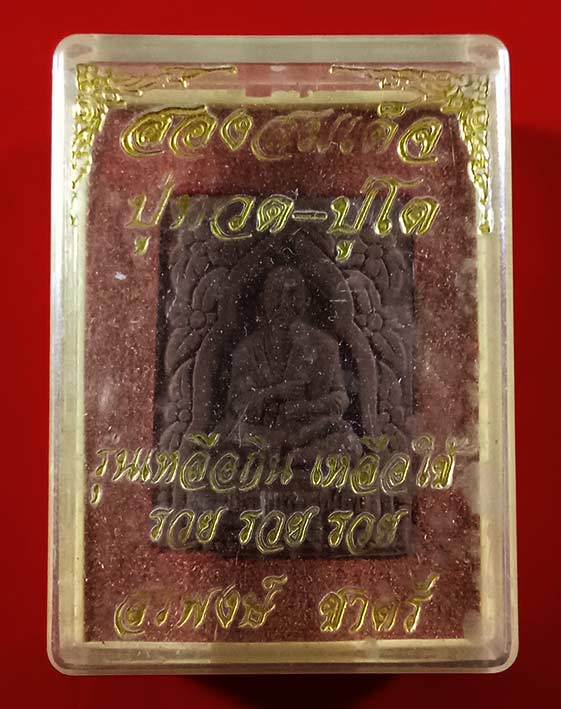 สองสมเด็จ
ปู่ทวด-ปู่โต
รุ่นเหลือกิน เหลือใช้
รวย รวย รวย
สรพงษ์ ชาตรี